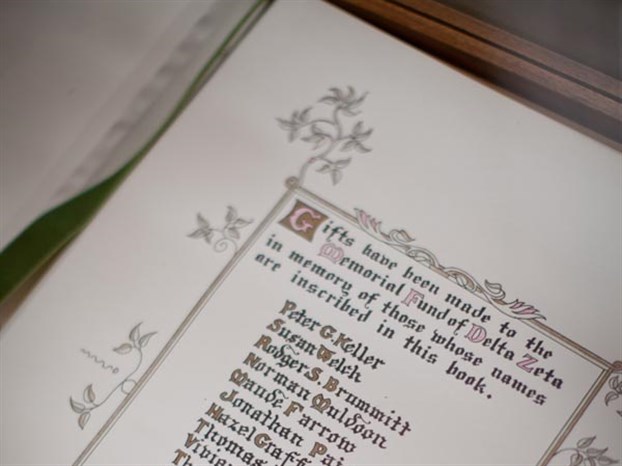 Gifts have been made to the
Memorial Fund of Delta Zeta
in memory of those whose names
are inscribed in this book.
Peter G. Keller
Susan Welch
Rodger S. Brummitt
Norman Muldoon
Maude Farrow
Jonathan
Hazel
Thomas